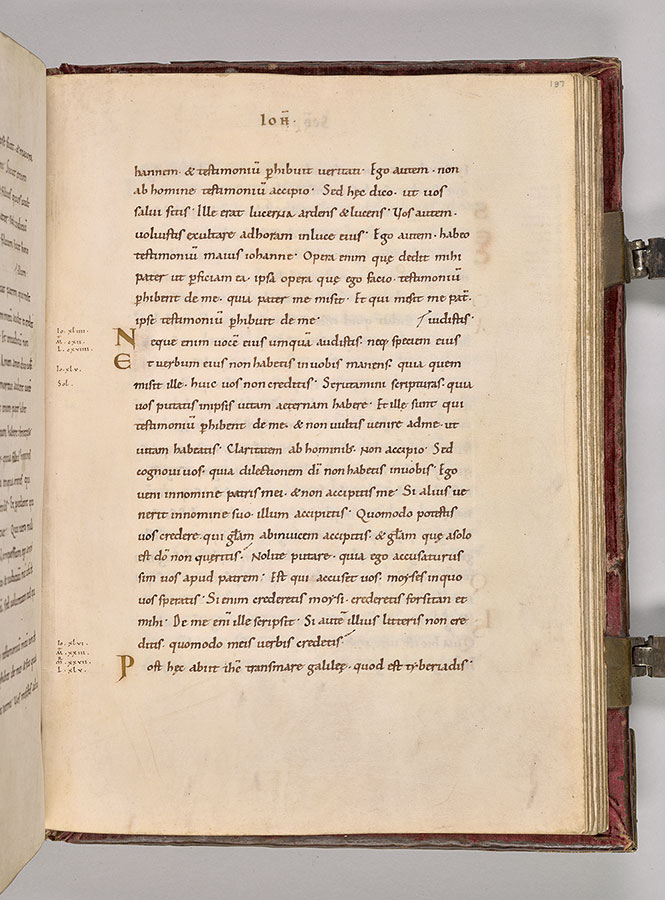 197
Ioh̄·
hannem· & testimoniū phibuit veritati· Ego autem· non
ab homine testimoniū accipio· Sed hęc dico· ut uos
salui sitis· Ille erat lucerna ardens & lucens· Uos autem·
uoluistis exultare adhoram inluce eius· Ego autem· habeo
testimoniū maius iohanne· Opera enim quę dedit mihi
pater ut pficiam ea· ipsa opera quę ego facio· testimoniū
phibent de me· quia pater me misit· Et qui misit me pat̄·
ipse testimoniū phibuit de me·
/udistis·
Io. xliiii.
M̄. cxii.
L. cxviiii.
Neque enim uocē eius umquā audistis· neq; speciem eius
Et uerbum eius non habetis inuobis manens· quia quem
Io. xlv.
Sol.
misit ille· huic uos non creditis· Scrutamini scripturas· quia
uos putatis inipsis uitam aeternam habere· Et illę sunt qui
testimoniū phibent de me· & non uultis uenire adme· ut
uitam habeatis· Claritatem ab hominib; non accipio· Sed
cognoui uos· quia dilectionem dī non habetis inuobis· Ego
ueni innomine patris mei· & non accipitis me· Si alius ue
nerit innomine suo· illum accipietis· Quomodo potestis
uos credere· qui glām abinuicem accipitis· & glām quę asolo
est dō non queritis· Nolite putare· quia ego accusaturus
sim uos apud patrem· Est qui accuset uos· moyses inquo
uos speratis· Si enim crederetis moysi· crederetis forsitan et
mihi· De me enī ille scripsit· Si autē illius litteris non cre
ditis· quomodo meis uerbis credetis·
Io. xlvi.
M̄. xxiii.
M̄. xxvii.
L. xlv.
Post hęc abiit ih̄c transmare galileę· quod est tyberiadis·